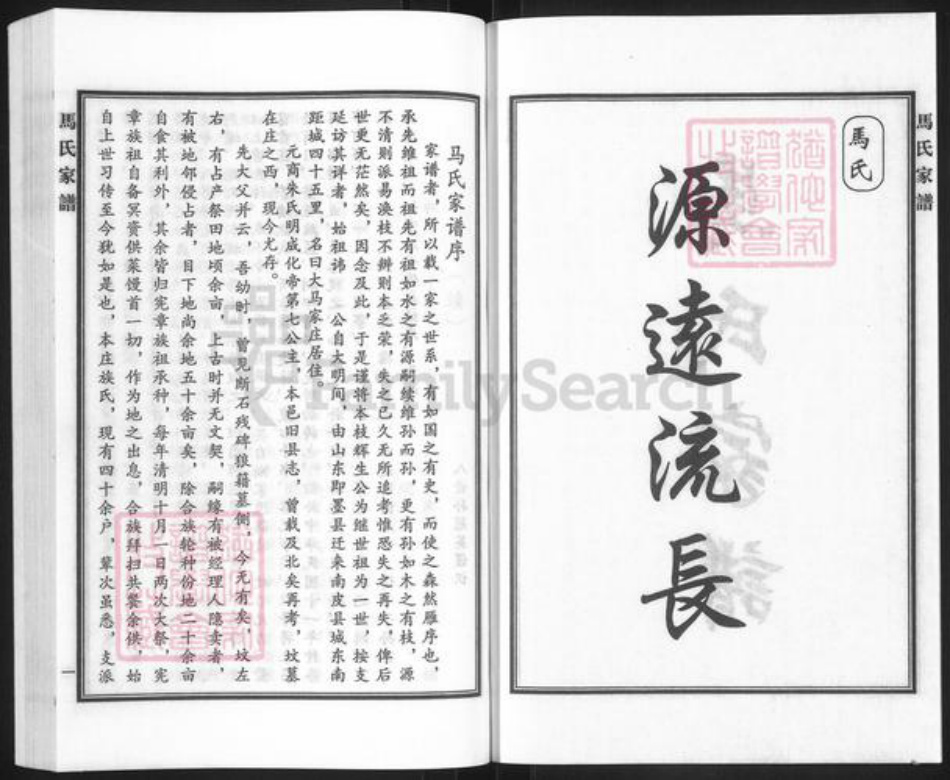 馬氏家譜
馬氏
源遠流長
马氏家谱序
家谱者，所以载一家之世系，有如国之有史，而使之森然雁序也，
承先维祖而祖先有祖如水之有源嗣续维孙而孙，更有孙如木之有枝，源
不清则派易涣枝不辩则本乏荣，失之已久无所追考惟恐失之再失，俾后
世更无茫然矣，因念及此，于是谨将本枝辉生公为继世祖为一世，按支
延访其详者，始祖讳 公自大明间，由山东即墨县迁来南皮县城东南
距城四十五里，名曰大马家庄居住。
元商朱氏明成化帝第七公主，本邑旧县志，曾载及北矣再考，坟墓
在庄之西，现今尤存。
先大父并云，吾幼时，曾见断石残碑狼籍墓侧，今无有矣，坟左
右，有占产祭田地顷余亩，上古时并无文契，嗣缘有被经理人隐卖者，
有被地邻侵占者，目下地尚余地五十余亩矣，除合族轮种份地二十余亩
自食其利外，其余皆归宪章族祖承种，每年清明十月一日两次大祭，宪
章族祖自备冥资供菜馒首一切，作为地之出息，合族拜扫共餮余供，始
自上世习传至今犹如是也，本庄族氏，现有四十余户，辈次虽悉，支派
馬氏家譜
一
FamilySearch